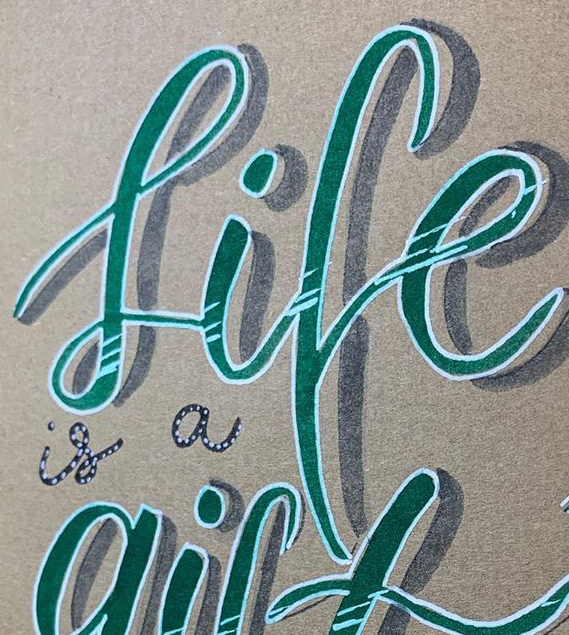 life
is a
gift